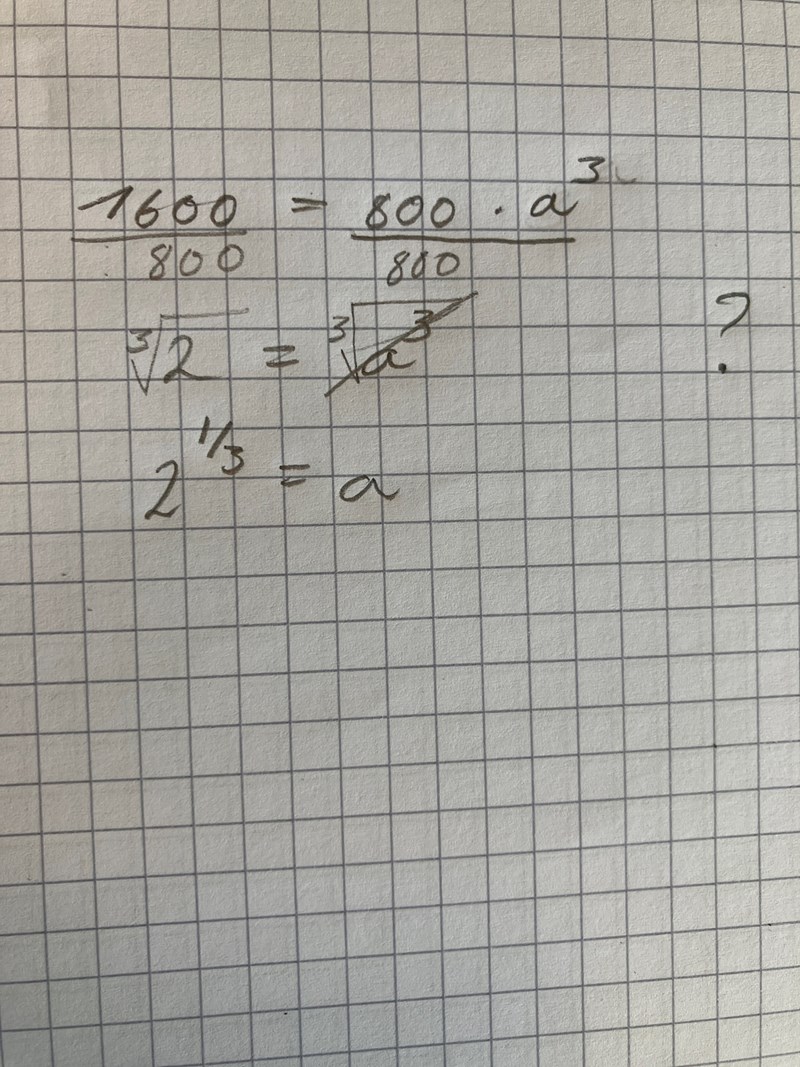 1600/800 = 800 · a³/800
∛2 = ∛a³ ?
2^1/3 = a